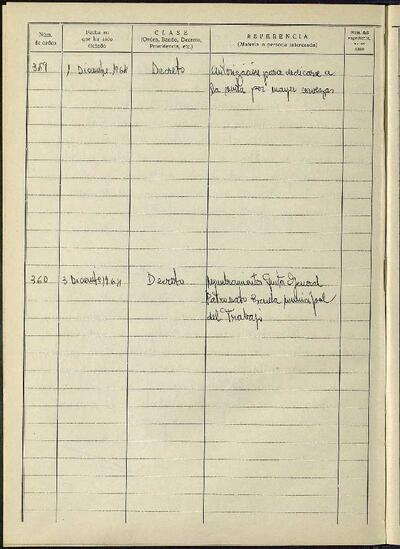 Núm. de orden
Fecha en que ha sido dictado
CLASE
(Orden, Bando, Decreto, Providencia, etc.)
REFERENCIA
(Materia o persona interesada)
Núm. del expediente
359
1 Diciembre 1964
Decreto
autorización para dedicarse a
la venta por mayor
360
3 Diciembre 1964
Decreto
Nombramientos Junta General
Patronato Escuela municipal
del Trabajo